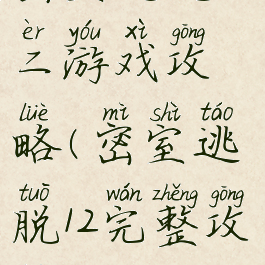 èr yóu xì gōng
二游戏攻
lüè mì shì táo
略(密室逃
tuō wán zhěng gōng
脱12完整攻